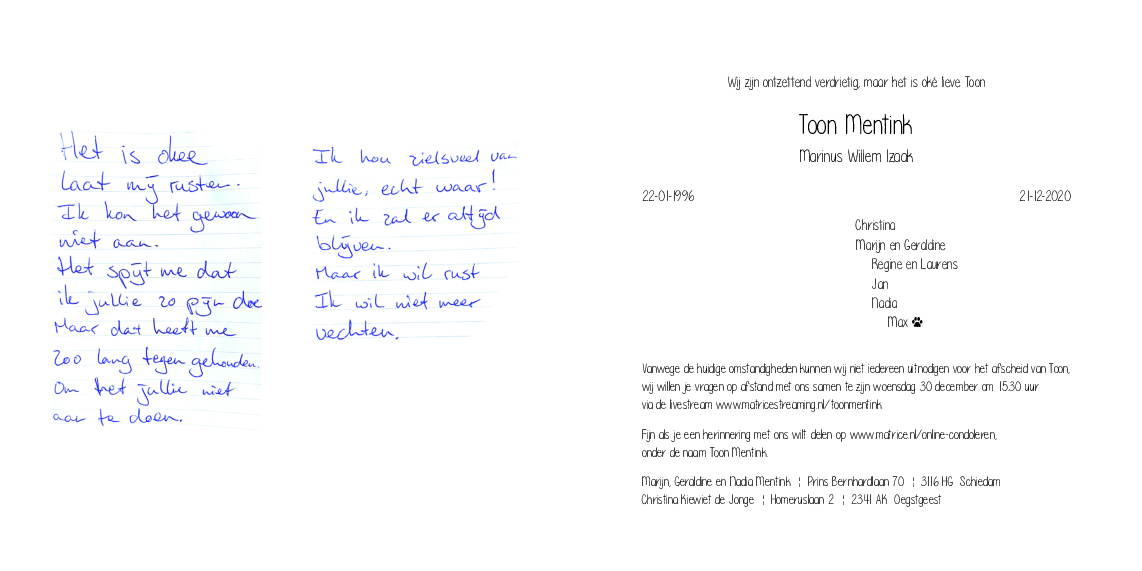 Het is okee
laat mij rusten.
Ik kon het gewoon
niet aan.
Het spijt me dat
ik jullie zo pijn doe
Maar dat heeft me
zoo lang tegen gehouden.
Om het jullie niet
aan te doen.
Ik hou zielsveel van
jullie, echt waar!
En ik zal er altijd
blijven.
Maar ik wil rust
Ik wil niet meer
vechten.
Wij zijn ontzettend verdrietig, maar het is oké lieve Toon
Toon Mentink
Marinus Willem Izaak
22-01-1996 21-12-2020
Christina
Marijn en Geraldine
Regine en Laurens
Jan
Nadia
Max
Vanwege de huidige omstandigheden kunnen wij niet iedereen uitnodigen voor het afscheid van Toon,
wij willen je vragen op afstand met ons samen te zijn woensdag 30 december om 15.30 uur
via de livestream www.matricestreaming.nl/toonmentink
Fijn als je een herinnering met ons wilt delen op www.matrice.nl/online-condoleren,
onder de naam Toon Mentink.
Marijn, Geraldine en Nadia Mentink ¦ Prins Bernhardlaan 70 ¦ 3116 HG Schiedam
Christina Kiewiet de Jonge ¦ Homeruslaan 2 ¦ 2341 AK Oegstgeest